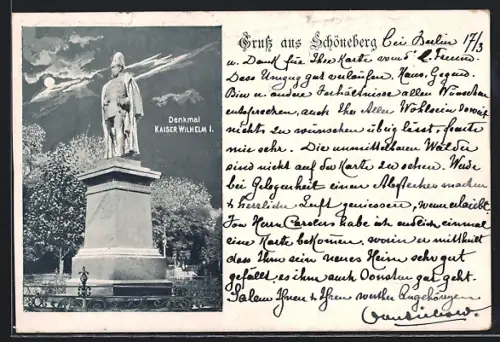 Denkmal
KAISER WILHELM I.
Gruß aus Schöneberg bei Berlin 17/3
u. Dank für Ihre Karte vom 5t
Dass Umzug gut verlaufen, Haus, Gegend,
Bin u. andere Verhältnisse allen Wünschen
entsprechen, auch Ihr Aller Wohlsein soweit
nichts zu wünschen übrig lässt, freute
mich sehr. Die unmittelbaren Wälder
sind nicht auf der Karte zu sehen. Werde
bei Gelegenheit einen Abstecher machen
& herrliche Luft geniessen, wenn erlaubt.
Von Herrn Carolus habe ich endlich einmal
eine Karte bekommen, worin er mittheilt
dass Ihm sein neues Heim sehr gut
gefällt, es ihm auch sonst gut geht.
Salem Ihnen & Ihren werthen Angehörigen